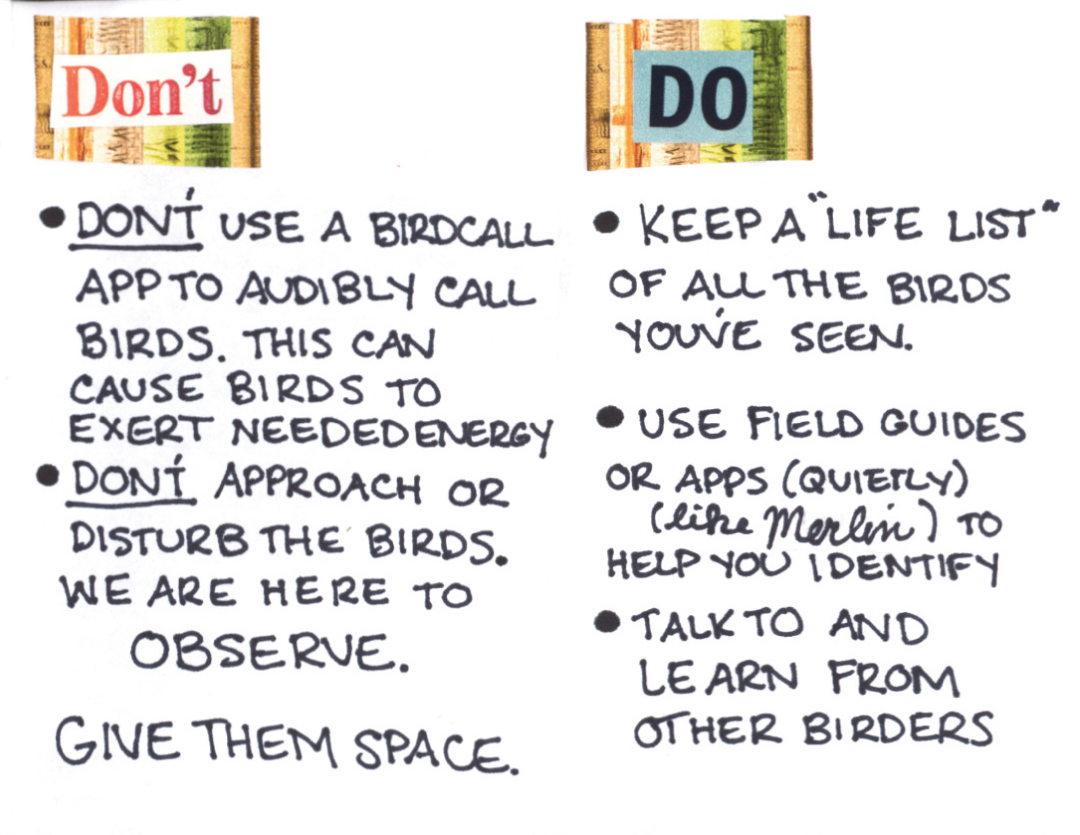 Don't
• DON'T USE A BIRDCALL
APP TO AUDIBLY CALL
BIRDS. THIS CAN
CAUSE BIRDS TO
EXERT NEEDED ENERGY
• DON'T APPROACH OR
DISTURB THE BIRDS.
WE ARE HERE TO
OBSERVE.
GIVE THEM SPACE.
DO
• KEEP A "LIFE LIST"
OF ALL THE BIRDS
YOU'VE SEEN.
• USE FIELD GUIDES
OR APPS (QUIETLY)
(like Merlin) TO
HELP YOU IDENTIFY
• TALK TO AND
LEARN FROM
OTHER BIRDERS